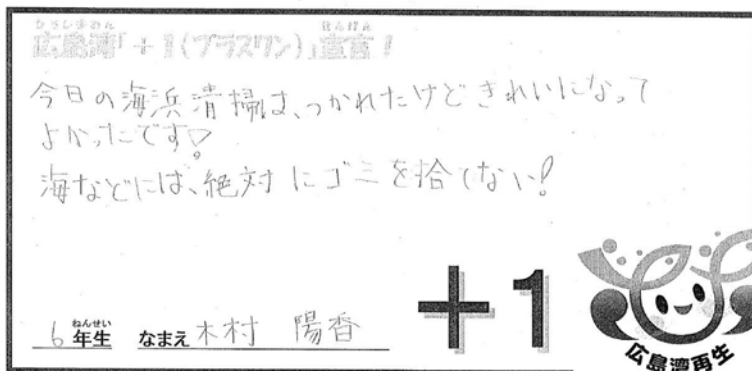 ひろしまわん せんげん
広島湾「+1(プラスワン)」宣言!
今日の海浜清掃は、つかれたけどきれいになって
よかったです!
海などには、絶対にゴミを捨てない!
+1
ねんせい
6年生 なまえ 木村 陽香
広島湾再生